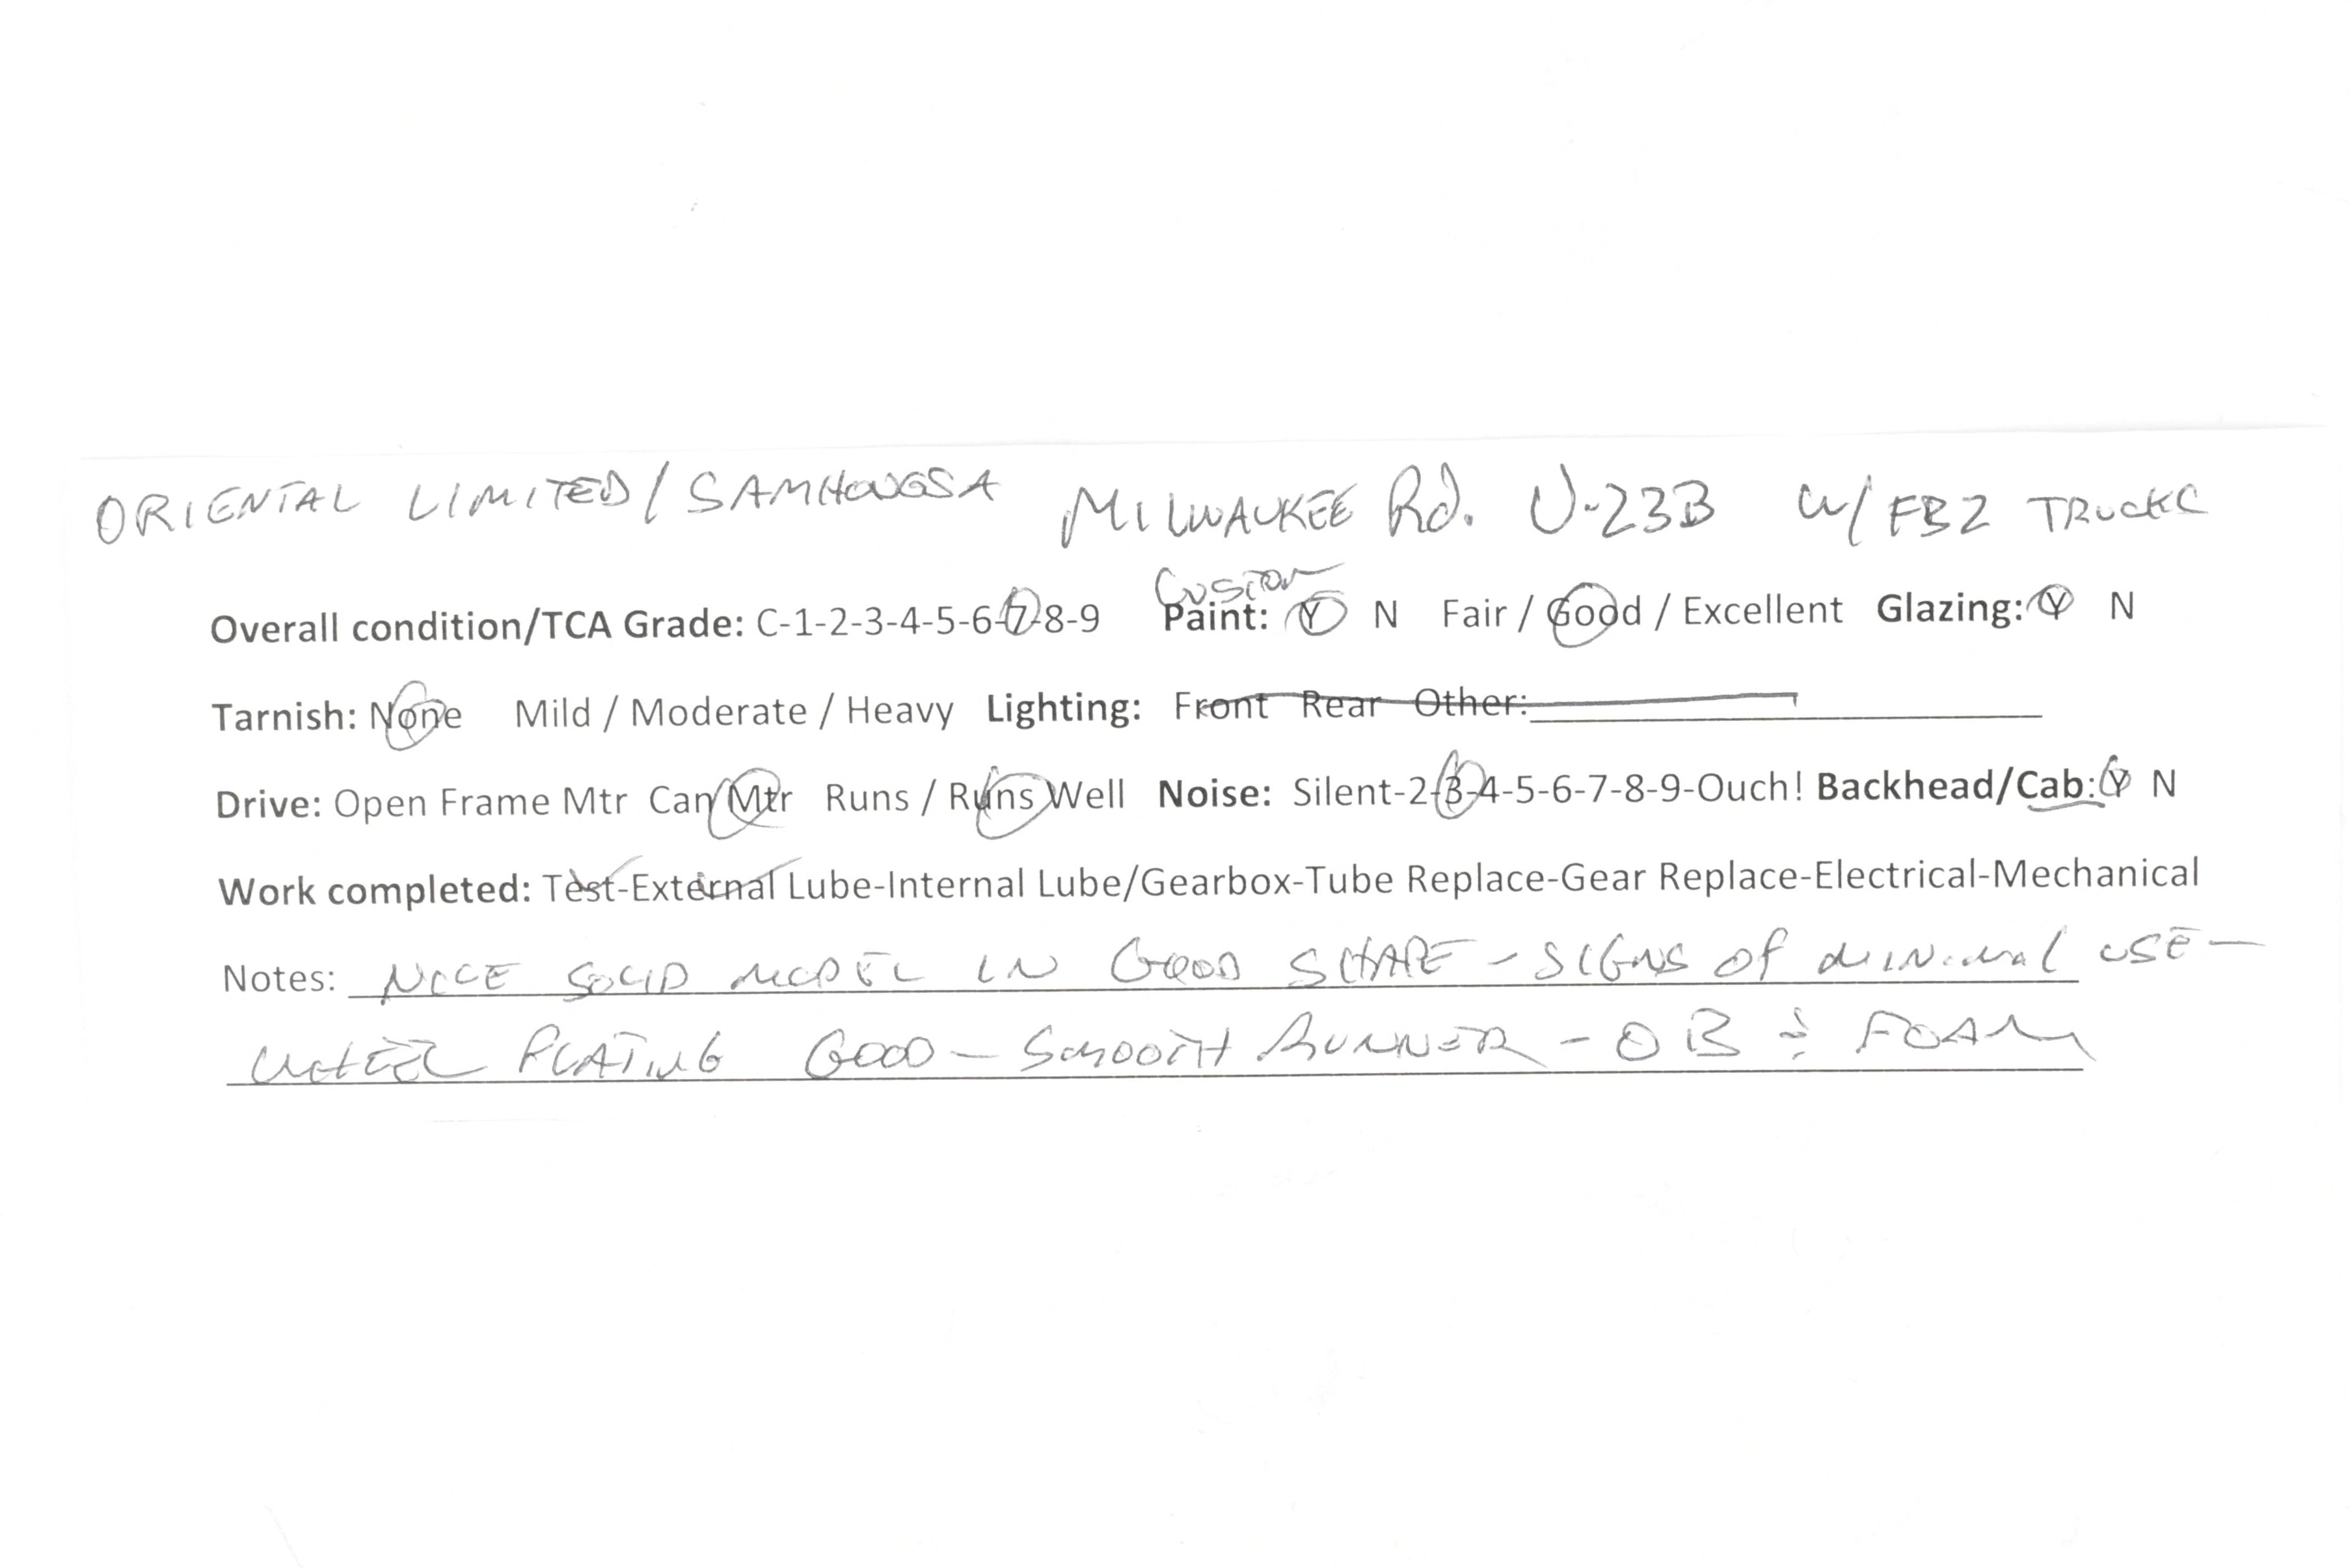 ORIENTAL LIMITED/SAMHONGSA MILWAUKEE Rd. U-23B W/FB2 TRUCKS
Custom
Overall condition/TCA Grade: C-1-2-3-4-5-6-7-8-9 Paint: Y N Fair / Good / Excellent Glazing: Y N
Tarnish: None Mild / Moderate / Heavy Lighting: Front Rear Other:
Drive: Open Frame Mtr Can Mtr Runs / Runs Well Noise: Silent-2-3-4-5-6-7-8-9-Ouch! Backhead/Cab: Y N
Work completed: Test-External Lube-Internal Lube/Gearbox-Tube Replace-Gear Replace-Electrical-Mechanical
Notes: NICE SOLID MODEL IN GOOD SHAPE - SIGNS OF MINIMAL USE -
WHEEL PLATING GOOD - SMOOTH RUNNER - OB & FOAM